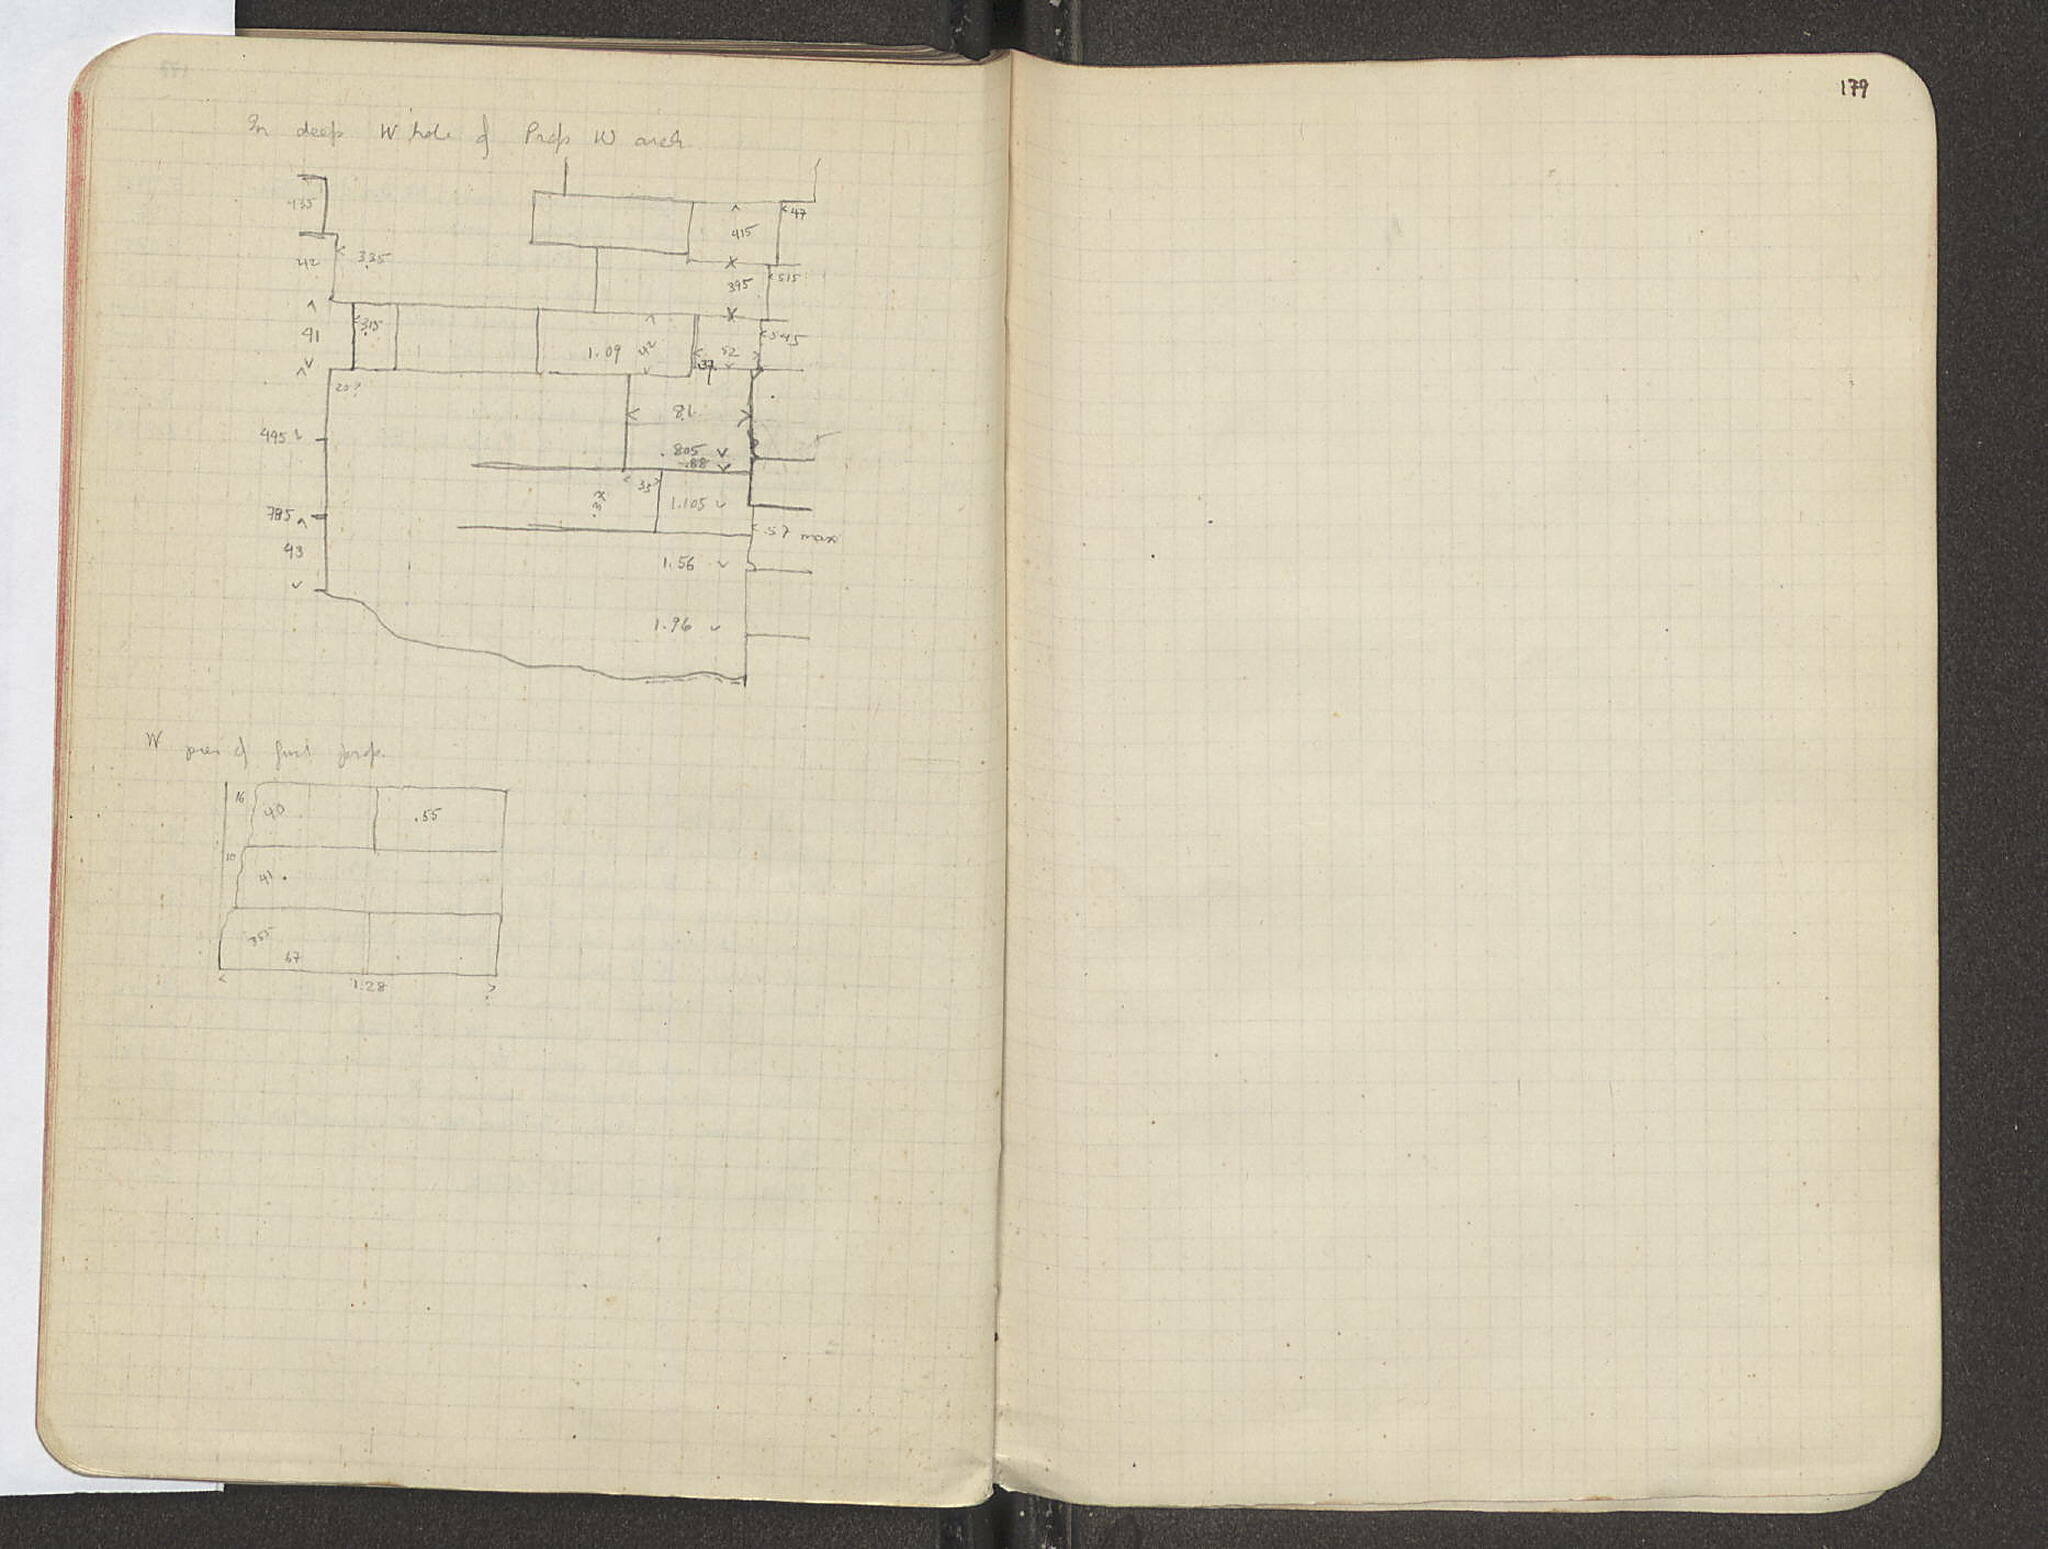 179
In deep W hole of Prop W arch
435
47
415
42
3.35
395
515
41
315
1.09
42
52
545
37
20?
81
495
.805
.88
33
1.105
785
57 max
43
1.56
1.96
W pier of first prop.
16
40
.55
10
41
355
67
1.28